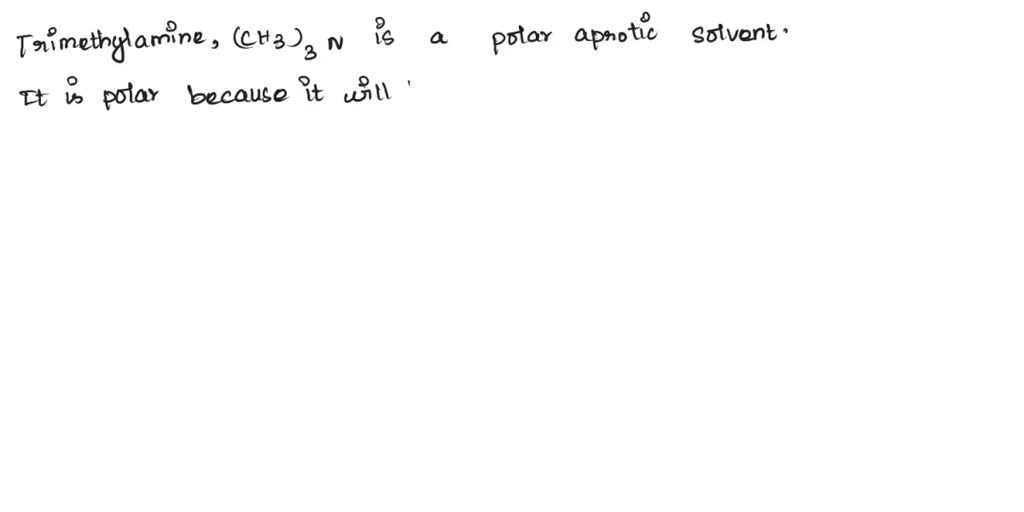 Trimethylamine, (CH3)3 N is a polar aprotic solvent.
It is polar because it will